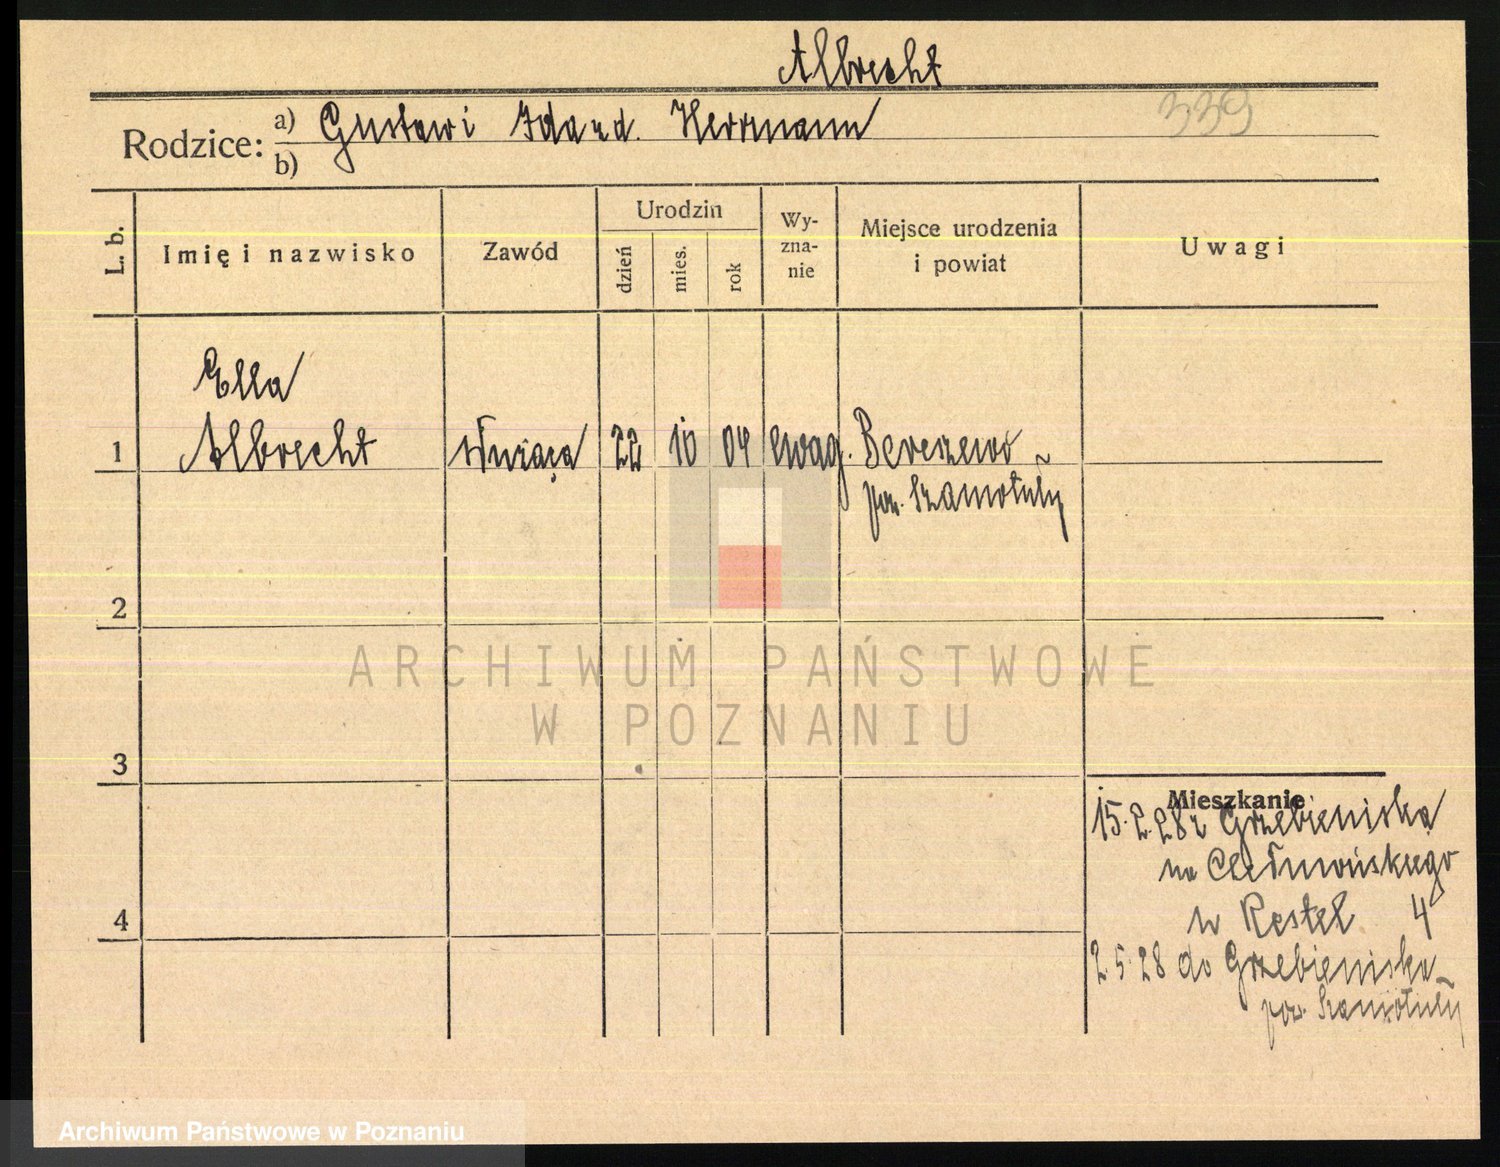 Albrecht
339
Rodzice: a) Gustaw i Ida z d. Herrmann
b)
L. b.
Imię i nazwisko
Zawód
Urodzin
dzień
mies.
rok
Wy-
zna-
nie
Miejsce urodzenia
i powiat
Uwagi
Ella
1 Albrecht służąca 22 10 04 ewag. Berezewo
pow. Szamotuły
2
3
4
Mieszkanie
15.2.28 z Grzebieniska
na Chełmońskiego
w Restel 4
2.5.28 do Grzebieniska
pow. Szamotuły
ARCHIWUM PAŃSTWOWE
W POZNANIU
Archiwum Państwowe w Poznaniu